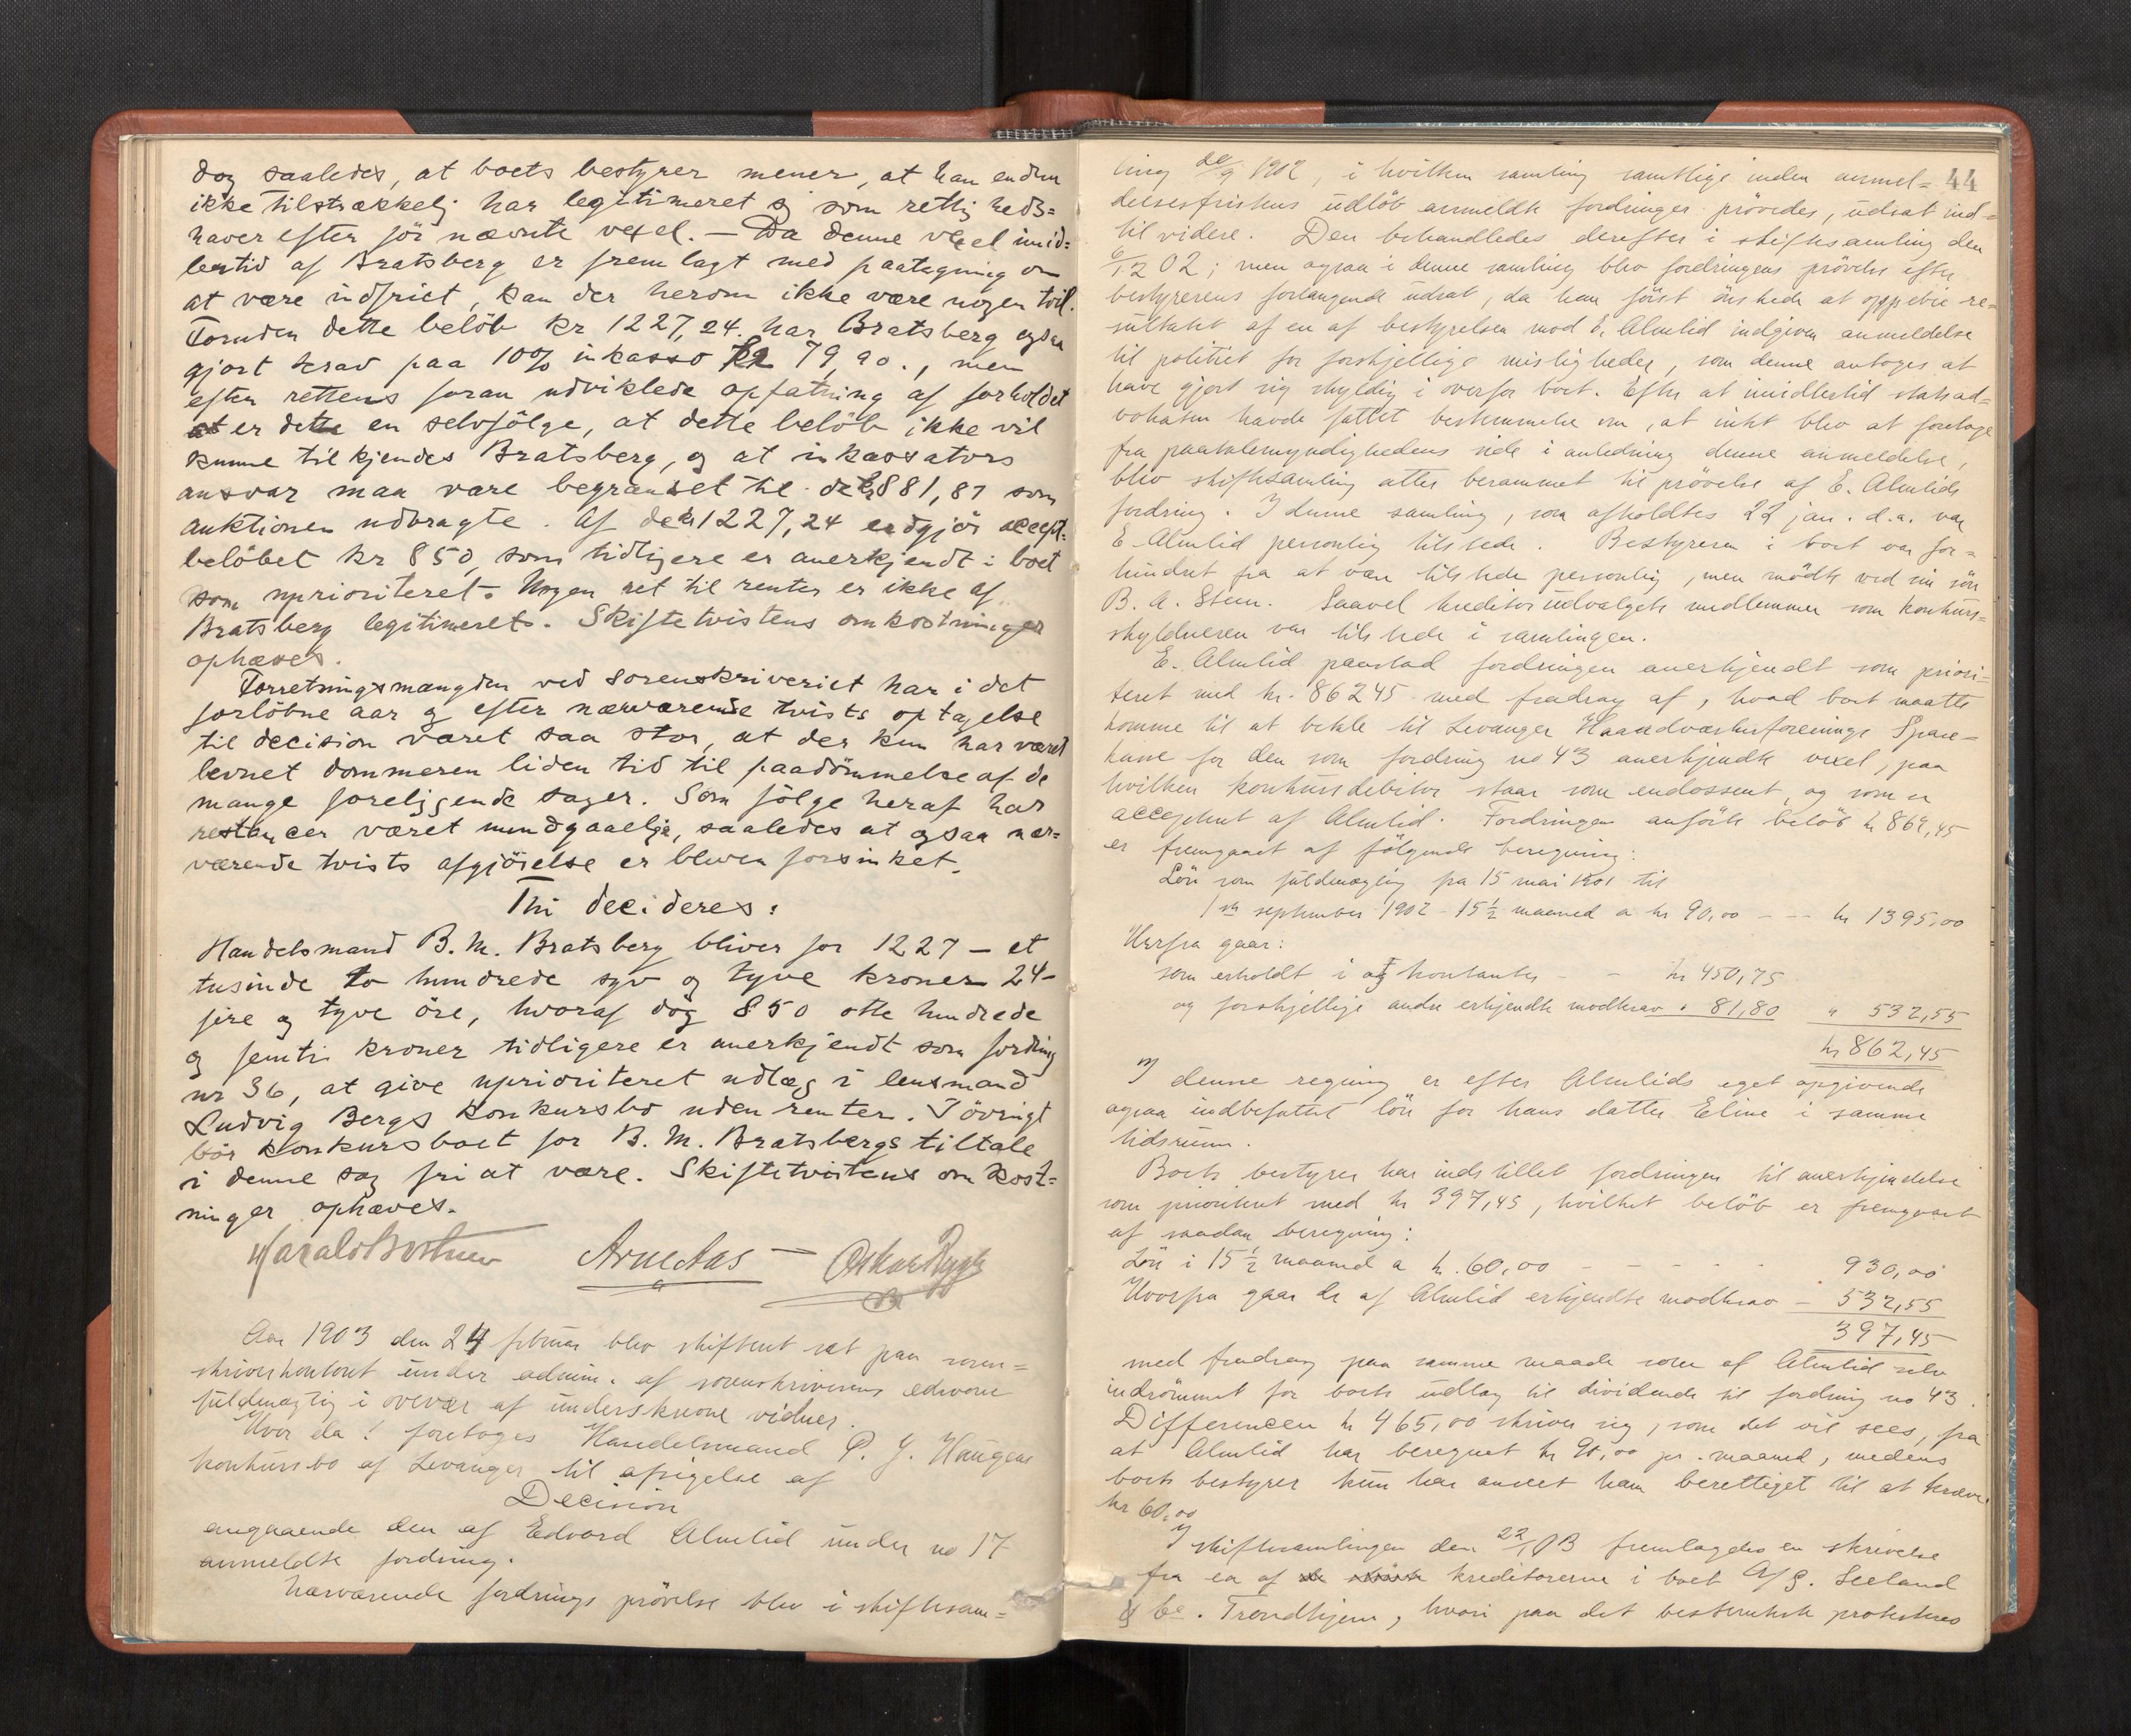 dog saaledes, at boets bestyrer mener, at han endnu
ikke tilstrækkelig har legitimeret sig som rettig heds=
haver efter før nævnte vexel. — Da denne vexel imid=
lertid af Bratsberg er fremlagt med paategning om
at være indfriet, kan der herom ikke være nogen tvil.
Foruden dette beløb kr 1227,24. har Bratsberg ogsaa
gjort krav paa 10% inkasso kr 79,90., men
efter rettens foran udviklede opfatning af forholdet
er dette en selvfølge, at dette beløb ikke vil
kunne tilkjendes Bratsberg, og at inkassators
ansvar maa være begrænset til de kr 881,87 som
auktionen udbragte. Af de kr 1227,24 udgjør accept=
beløbet kr 850, som tidligere er anerkjendt i boet
som uprioriteret. Nogen ret til renter er ikke af
Bratsberg legitimeret. Skiftetvistens omkostninger
ophæves.
Forretningsmængden ved sorenskriveriet har i det
forløbne aar og efter nærværende tvists optagelse
til decision været saa stor, at der kun har været
levnet dommeren liden tid til paadømmelse af de
mange foreliggende sager. Som følge heraf har
restancer været uundgaaelige, saaledes at ogsaa nær=
værende tvists afgjørelse er bleven forsinket.
Thi decideres:
Handelsmand B. M. Bratsberg bliver for 1227 — et
tusinde to hundrede syv og tyve kroner 24 —
fire og tyve øre, hvoraf dog 850 otte hundrede
og femti kroner tidligere er anerkjendt som fordring
nr 36, at give uprioriteret udlæg i lensmand
Ludvig Bergs konkursbo uden renter. I øvrigt
bør konkursboet for B. M. Bratsbergs tiltale
i denne sag fri at være. Skiftetvistens omkost=
ninger ophæves.
Harald Arne Aas — Oskar Rygh
Aar 1903 den 24 februar blev skifteret sat paa soren=
skriverkontoret under admin. af sorenskriverens edsvorne
fuldmægtig i overvær af underskrevne vidner.
Hvor da: foretoges Handelsmand P. J. Haugens
konkursbo af Levanger til afsigelse af
Decision
angaaende den af Edvard Almlid under no 17
anmeldte fordring.
Nærværende fordrings prøvelse blev i skiftesam=
44
ling 1902, i hvilken samling samtlige inden anmel=
delsesfristens udløb anmeldte fordringer prøvedes, udsat ind=
til videre. Den behandledes derefter i skiftesamling den
6/12 02; men ogsaa i denne samling blev fordringens prøvelse efter
bestyrerens forlangende udsat, da han først ønskede at oppebie re=
sultatet af en af bestyrelsen mod E. Almlid indgiven anmeldelse
til politiet for forskjellige misligheder, som denne antoges at
have gjort sig skyldig i overfor boet. Efter at imidlertid statsad=
vokaten havde fattet bestemmelse om, at intet blev at foretage
fra paatalemyndighedens side i anledning denne anmeldelse,
blev skiftesamling atter berammet til prøvelse af E. Almlids
fordring. I denne samling, som afholdtes 22 jan. d.a. var
E Almlid personlig tilstede. Bestyreren i boet var for=
hindret fra at være tilstede personlig, men mødte ved sin søn
B. A. Steen. Saavel kreditorudvalgets medlemmer som konkurs=
skyldneren var tilstede i samlingen.
E. Almlid paastod fordringen anerkjendt som priori=
teret med kr. 862 45 med fradrag af, hvad boet maatte
komme til at betale til Levanger Haandværkerforenings Spare=
kasse for den som fordring no 43 anerkjendte vexel, paa
hvilken konkursdebitor staar som endossent, og som er
acceptert af Almlid. Fordringen anførte beløb kr 862,45
er fremgaaet af følgende beregning:
Løn som fuldmægtig fra 15 mai 1901 til
1ste september 1902 - 15 ½ maaned a kr 90,00 - - - kr 1395,00
Herfra gaar:
som erholdt i kontanter - - kr 450,75
og forskjellige andre erkjendte modkrav " 81,80 " 532,55
kr 862,45
I denne regning er efter Almlids eget opgivende
ogsaa indbefattet løn for hans datter Eline i samme
tidsrum.
Boets bestyrer har indstillet fordringen til anerkjendelse
som prioritert med kr 397,45, hvilket beløb er fremgaaet
af saadan beregning:
Løn i 15 ½ maaned a kr. 60,00 - - - - 930,00
Hvorfra gaar de af Almlid erkjendte modkrav - 532,55
397,45
med fradrag paa samme maade som af Almlid selv
indrømmet for boets udlæg til dividende til fordring no 43.
Differencen kr 465,00 skriver sig, som det vil sees, fra
at Almlid har beregnet kr 90,00 pr. maaned, medens
boets bestyrer kun har anseet ham berettiget til at kræve
kr 60,00
I skiftesamlingen den 22/1 03 fremlagdes en skrivelse
fra en af kreditorerne i boet A/S. Seeland
& Co. Trondhjem, hvori paa det bestemteste protesteres